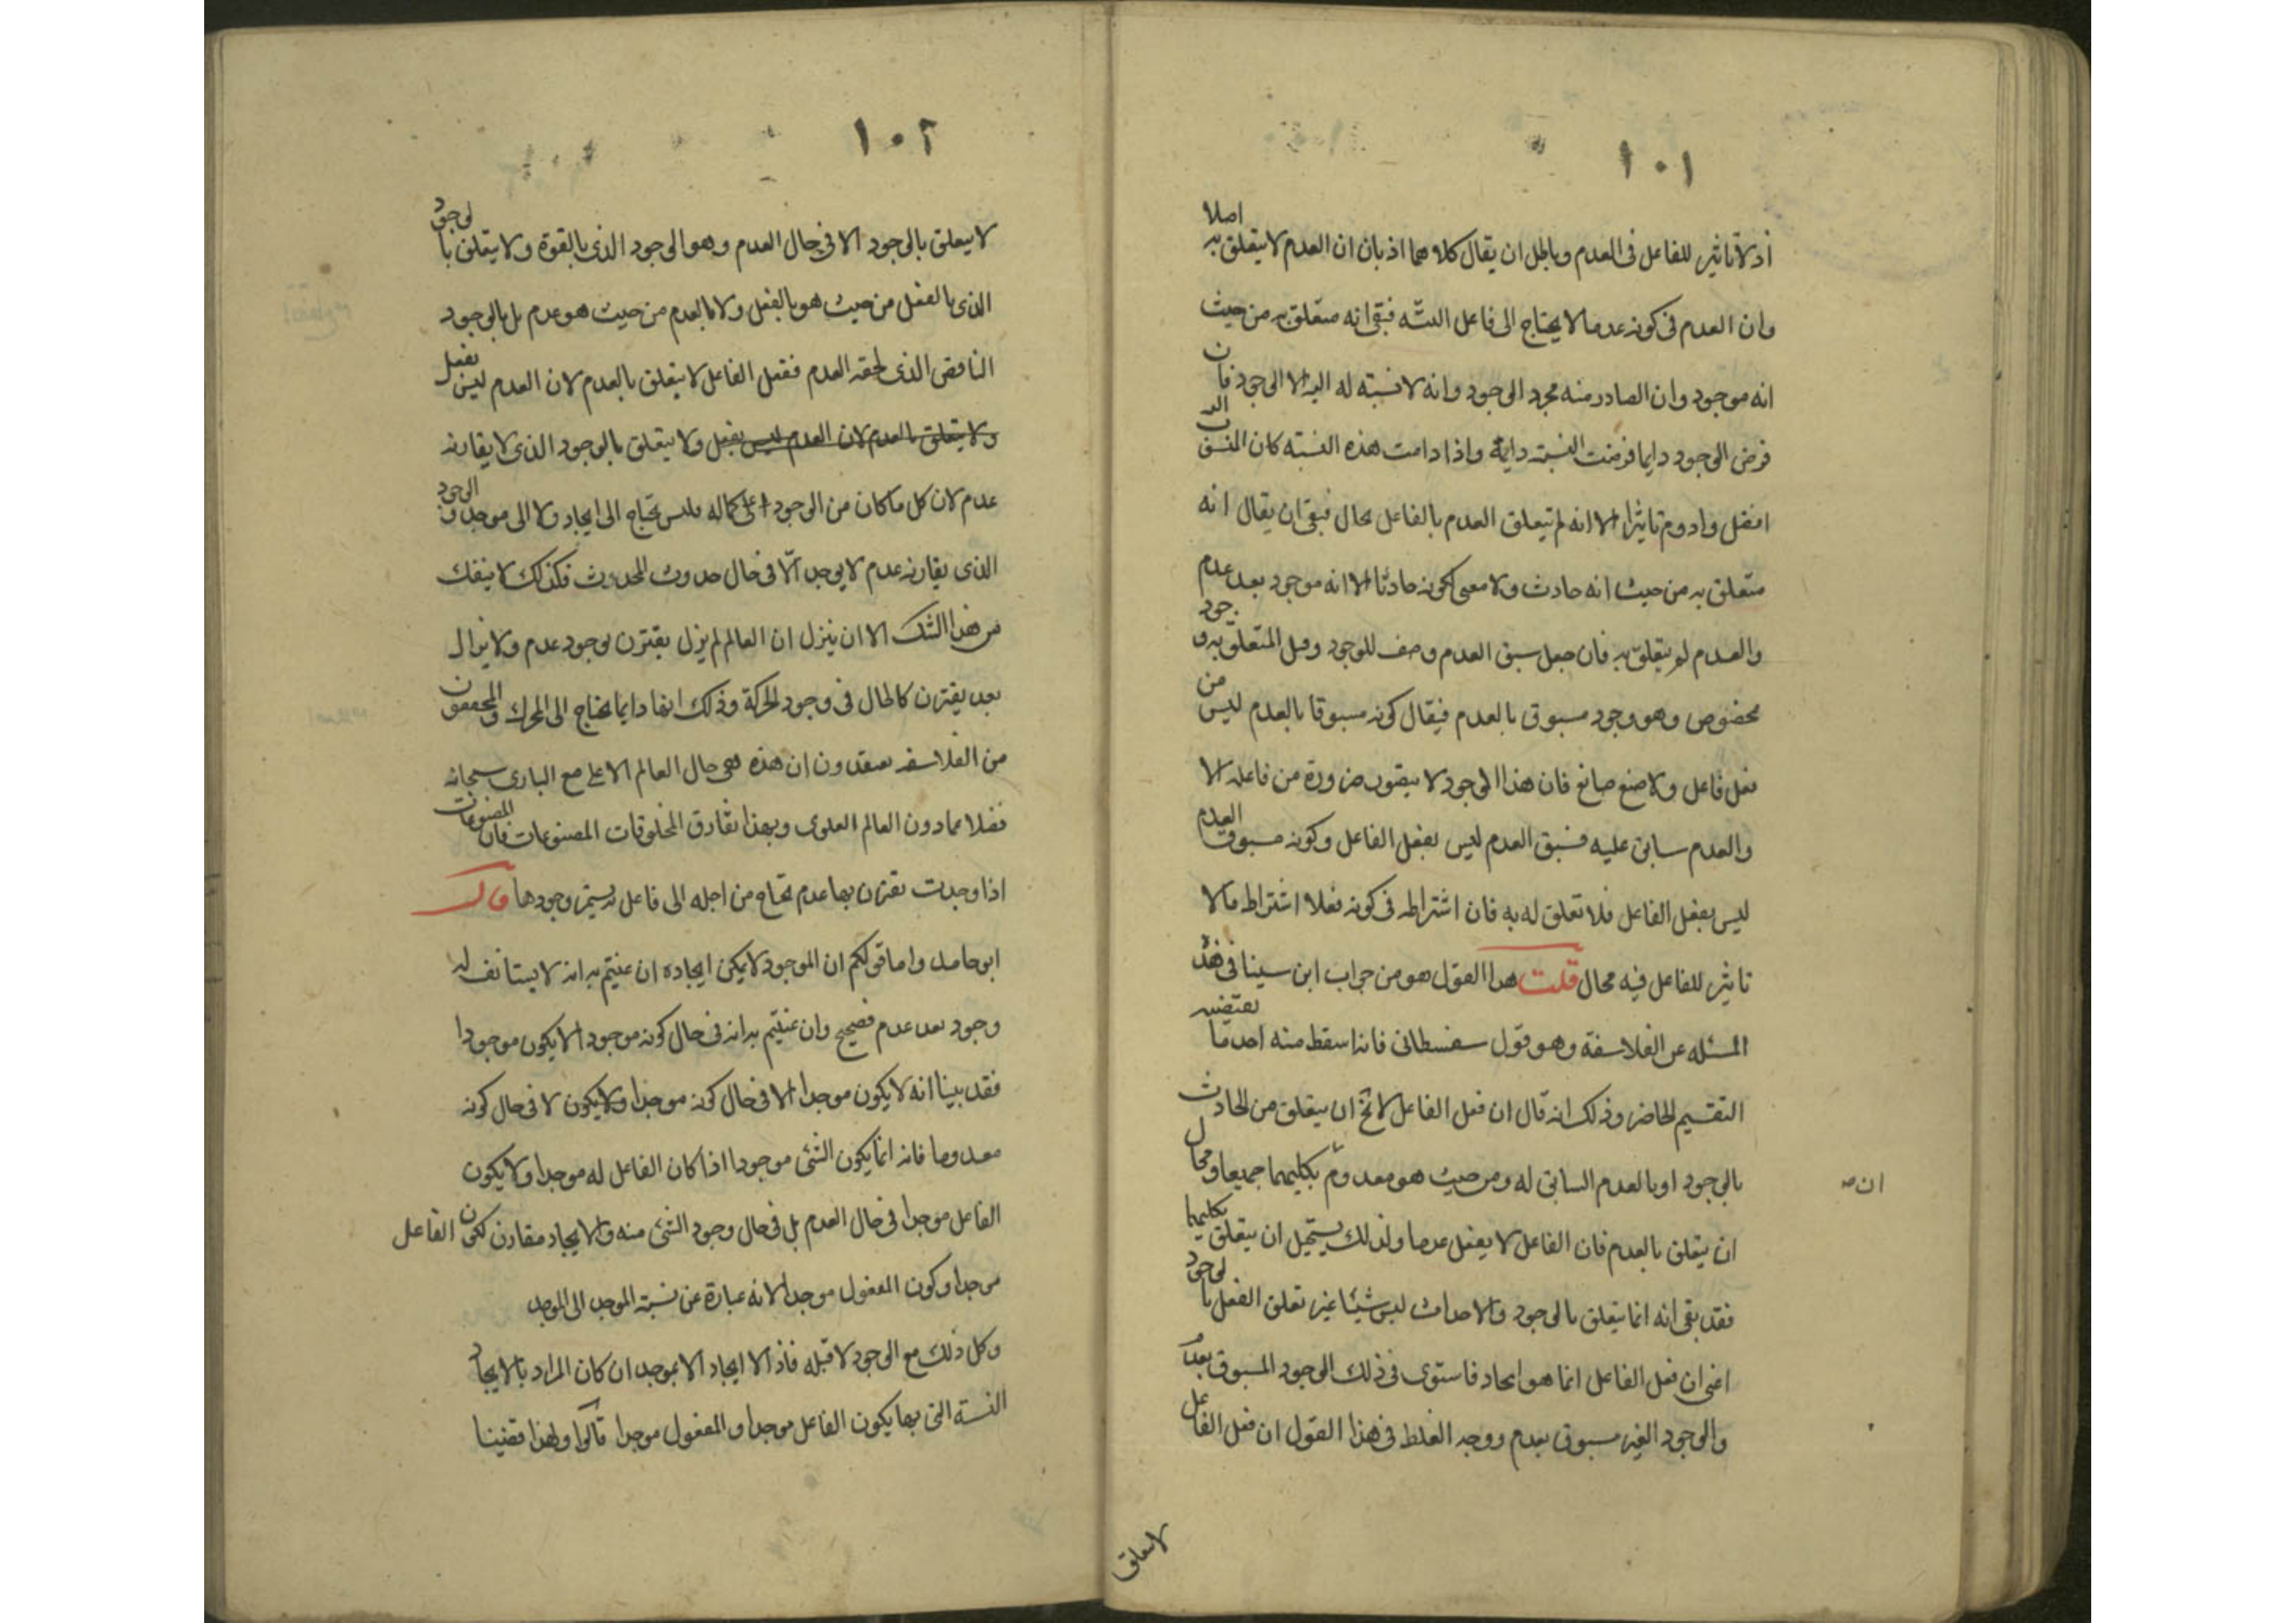 ١٠١
اذ لا تاثير للفاعل فى العدم وباطل ان يقال كلاهما اذ بان ان العدم لا يتعلق به اصلا
وان العدم فى كونه عدما لا يحتاج الى فاعل البتّه فبقى انه متعلق به من حيث
انه موجود وان الصادر منه مجرد الوجود وانه لا نسبته له اليه الا الوجود فان
فرض الوجود دايما فرضت النسبته دايمة واذا دامت هذه النسبته كان المنسوب اليه
افضل وادوم تاثيرا الا انه لم يتعلق العدم بالفاعل بحال فبقى ان يقال انه
متعلق به من حيث انه حادث ولا معنى لكونه حادثا الا انه موجود بعد عدم
والعدم لم يتعلق به فان جعل سبق العدم وصف للوجود وقيل المتعلق به وجود
مخصوص وهو وجود مسبوق بالعدم فيقال كونه مسبوقا بالعدم ليس من
فعل فاعل ولا صنع صانع فان هذا الوجود لا يتصور ضرورة من فاعله الا
والعدم سابق عليه فسبق العدم ليس بفعل الفاعل وكونه مسبوق العدم
ليس بفعل الفاعل فلا تعلق له به فان اشتراطه فى كونه فعلا اشتراط ما لا
تاثير للفاعل فيه محال قلت هذا القول هو من جواب ابن سينا فى هذه
المسئله عن الفلاسفة وهو قول سفسطانى فانه اسقط منه احد ما يقتضيه
التقسيم الحاضر وذلك انه قال ان فعل الفاعل لا يخ ان يتعلق من الحادث
بالوجود او بالعدم السابق له ومن حيث هو معدوم بكليهما جميعا ومحال
ان ص
ان يتعلق بالعدم فان الفاعل لا يفعل عدما ولذلك يستحيل ان يتعلق بكليهما
فقد بقى انه انما يتعلق بالوجود والاحداث ليس شيئا غير تعلق الفعل بالوجود
اعنى ان فعل الفاعل انما هو ايجاد فاستوى فى ذلك الوجود المسبوق بعدم
والوجود الغير مسبوق بعدم ووجه الغلط فى هذا القول ان فعل الفاعل
لا يتعلق
١٠٢
لا يتعلق بالوجود الا فى حال العدم وهو الوجود الذى بالقوة ولا يتعلق بالوجود
الذى بالفعل من حيث هو بالفعل ولا بالعدم من حيث هو عدم بل بالوجود
الناقص الذى لحقه العدم ففعل الفاعل لا يتعلق بالعدم لان العدم ليس بفعل
ولا يتعلق بالعدم لان العدم ليس بفعل ولا يتعلق بالوجود الذى لا يقارنه
عدم لان كل ما كان من الوجود على كماله فليس يحتاج الى ايجاد ولا الى موجد والوجود
الذى يقارنه عدم لا يوجد الّا فى حال حدوث المحدوث فكذلك لا ينفك
من هذا الشك الا ان ينزل ان العالم لم يزل يقترن بوجود عدم ولا يزال
بعد يقترن كالحال فى وجود الحركة وذلك انها دايما يحتاج الى المحرك والمحققون
من الفلاسفه يعتقدون ان هذه هى حال العالم الاعلى مع البارى سبحانه
فضلا عما دون العالم العلوى وبهذا تفارق المخلوقات المصنوعات فان المصنوعات
اذا وجدت تقترن بها عدم تحتاج من اجله الى فاعل به يستمر وجودها قال
ابو حامد واما قولكم ان الموجود لا يمكن ايجاده ان عنيتم به انه لا يستانف له
وجود بعد عدم فصحيح وان عنيتم به انه فى حال كونه موجود الا يكون موجودا
فقد بينا انه لا يكون موجدا الا فى حال كونه موجدا ولا يكون لا فى حال كونه
معدوما فانه انما يكون الشئ موجودا اذا كان الفاعل له موجدا ولا يكون
الفاعل موجدا فى حال العدم بل فى حال وجود الشئ منه والايجاد مقارن لكون الفاعل
موجدا وكون المفعول موجدا لانه عبارة عن نسبته الموجد الى الموجد
وكل ذلك مع الوجود لا قبله فاذ الا ايجاد الا بموجد ان كان المراد بالايجاد
النسبة التى بها يكون الفاعل موجدا والمفعول موجدا قالوا ولهذا قضينا